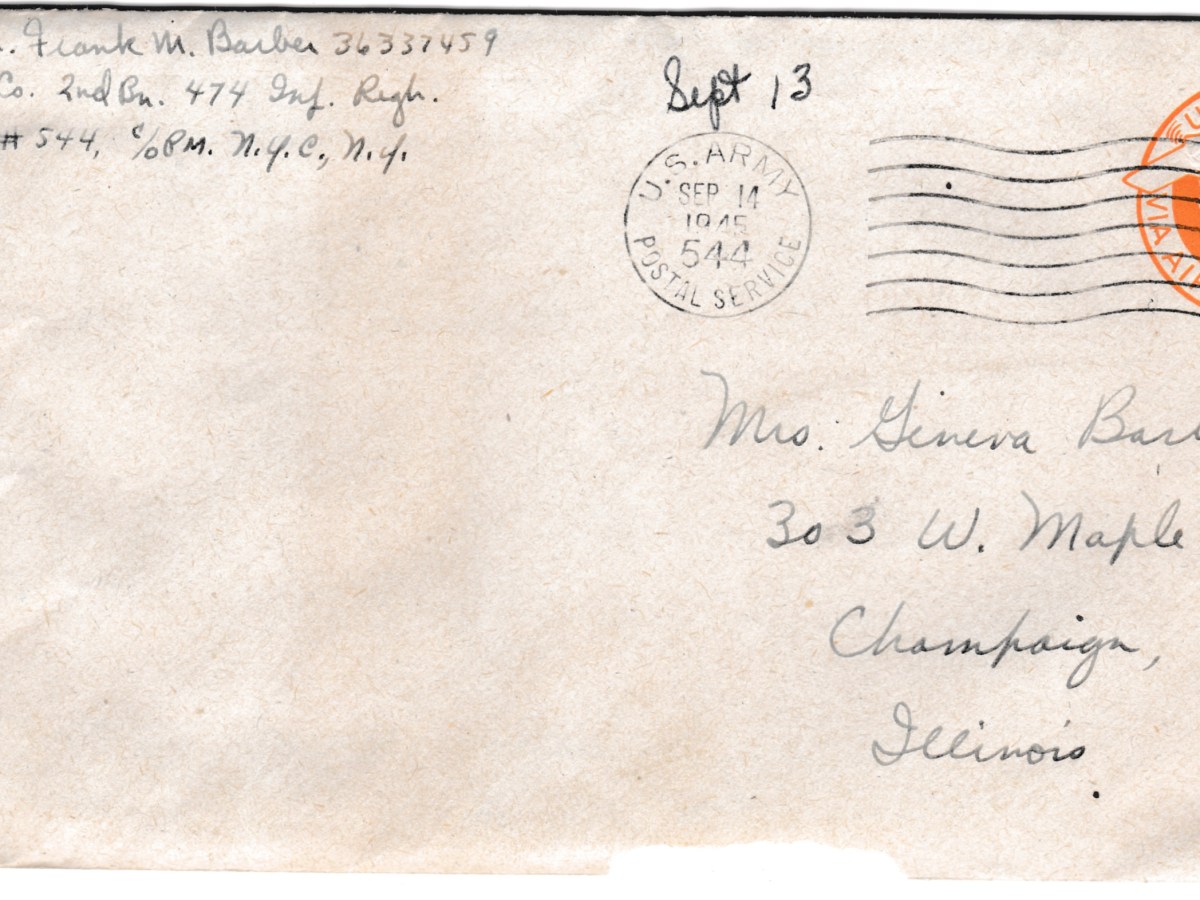 . Frank M. Barber 36337459
Co. 2nd Bn. 474 Inf. Regt.
# 544, c/o PM. N.Y.C., N.Y.
Sept 13
U.S. ARMY
SEP 14
1945
544
POSTAL SERVICE
VIA AIR
Mrs. Geneva Barb
303 W. Maple
Champaign,
Illinois